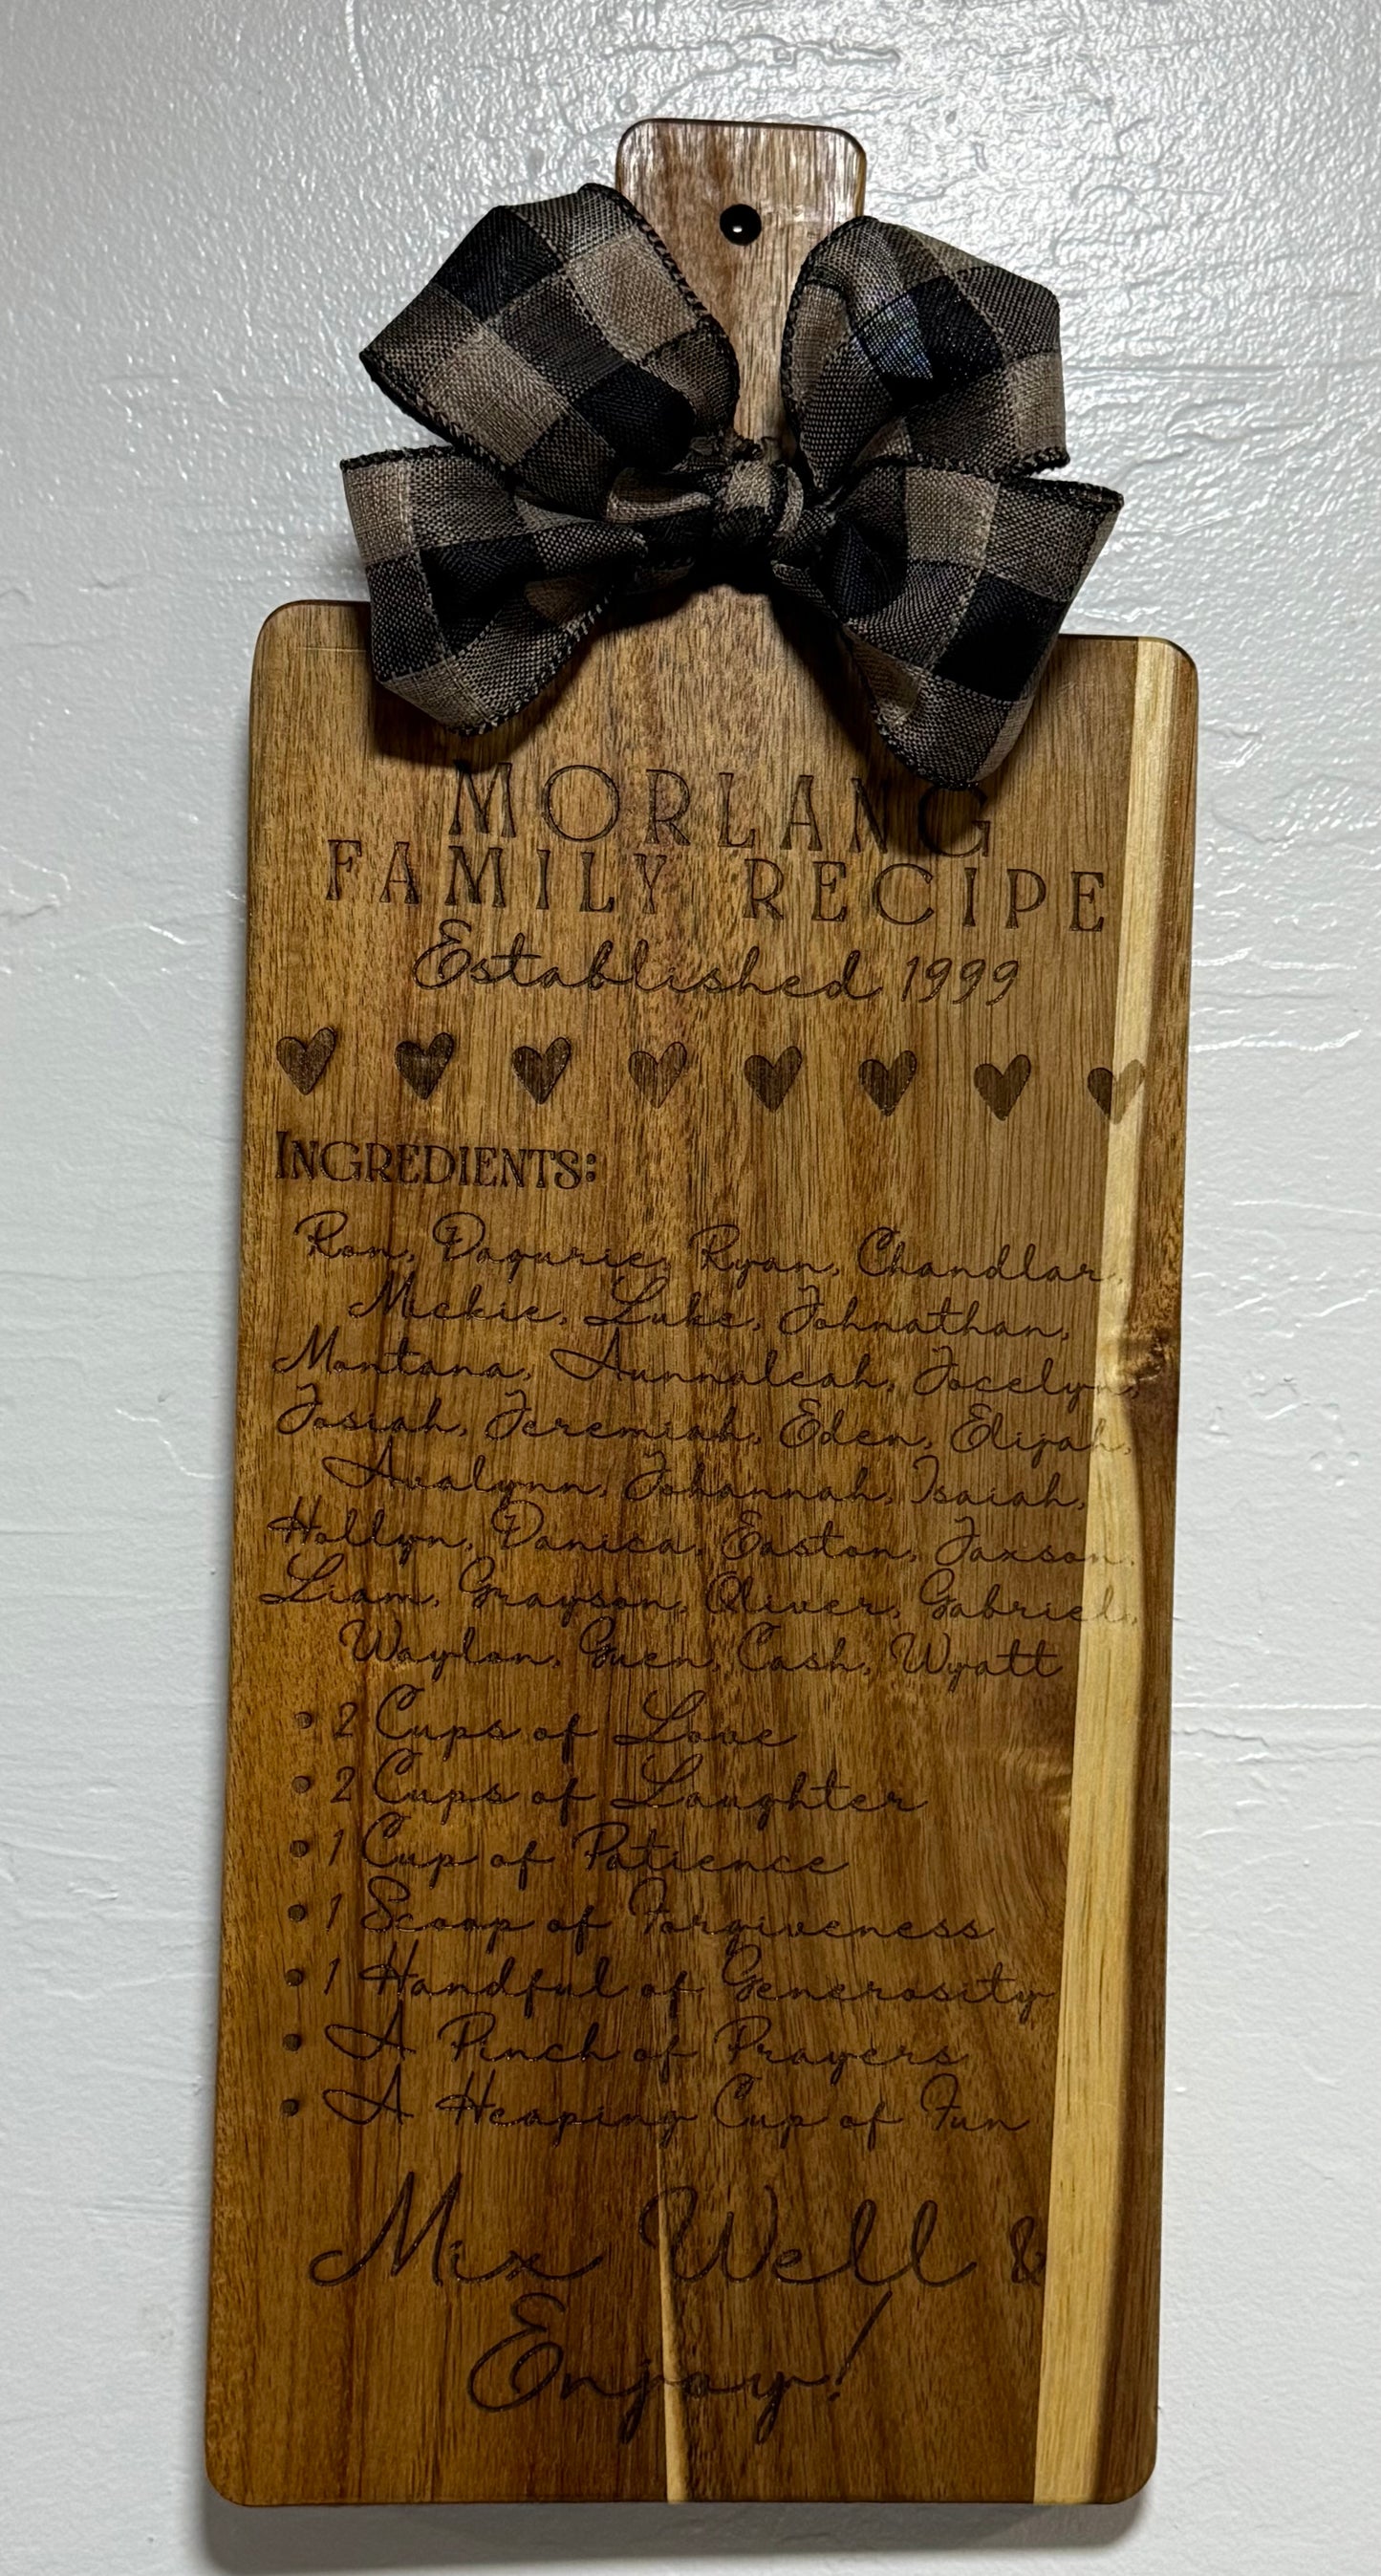 MORLANG
FAMILY RECIPE
Established 1999
INGREDIENTS:
Ron, Daqurie, Ryan, Chandlar,
Mickie, Luke, Johnathan,
Montana, Aunnaleah, Jocelyn,
Josiah, Jeremiah, Eden, Elijah,
Avalynn, Johannah, Isaiah,
Hollyn, Danica, Easton, Jaxson,
Liam, Grayson, Oliver, Gabriel,
Waylon, Guen, Cash, Wyatt
• 2 Cups of Love
• 2 Cups of Laughter
• 1 Cup of Patience
• 1 Scoop of Forgiveness
• 1 Handful of Generosity
• A Pinch of Prayers
• A Heaping Cup of Fun
Mix Well &
Enjoy!